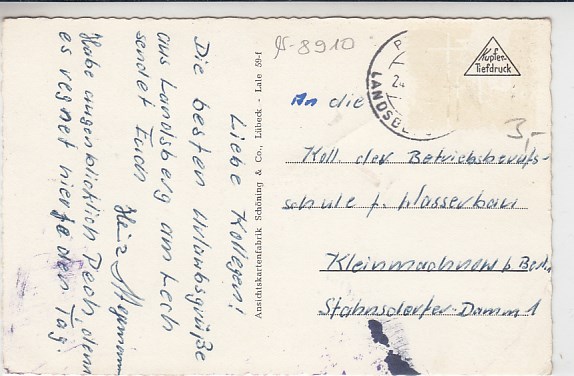 JS-8910
Liebe Kollegen!
Die besten Urlaubsgrüße
aus Landsberg am Lech
sendet Euch
Heinz
Habe augenblicklich Pech denn
es regnet hier jeden Tag!
Ansichtskartenfabrik Schöning & Co., Lübeck - Lale 59-f
LANDSBE
Kupfer-
Tiefdruck
3,-
An die
Koll. der Betriebsberufs-
schule f. Wasserbau
Kleinmachnow b. Berlin
Stahnsdorfer-Damm 1